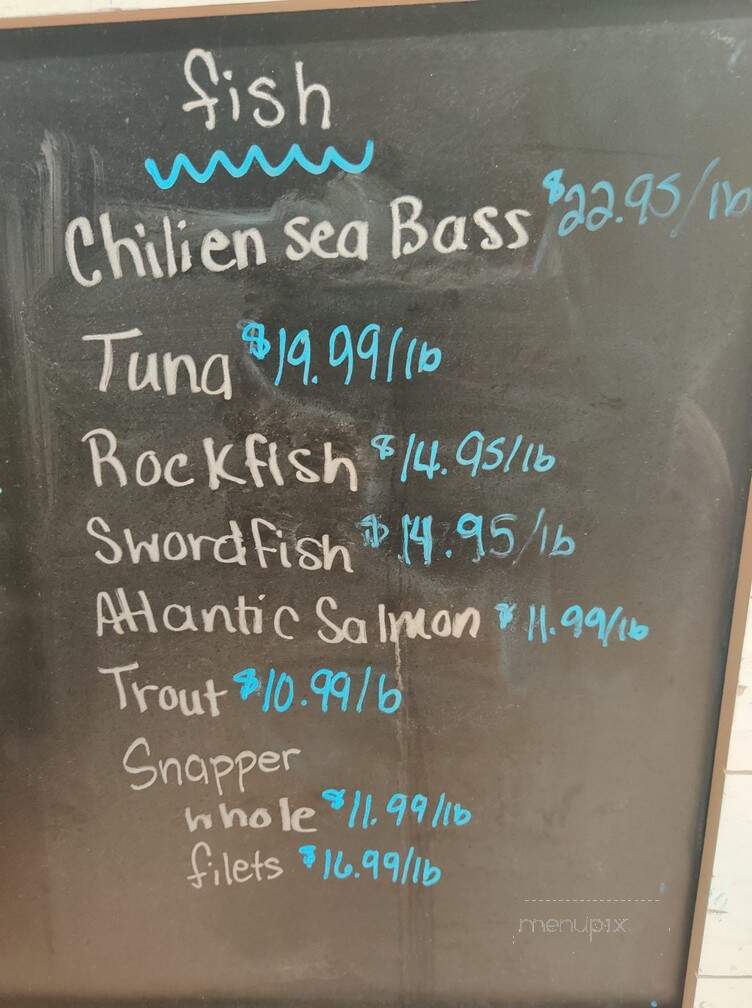 fish
Chilien sea Bass $22.95/lb
Tuna $19.99/lb
Rockfish $14.95/lb
Swordfish $14.95/lb
Atlantic Salmon $11.99/lb
Trout $10.99/b
Snapper
whole $11.99/lb
filets $16.99/lb
menupix